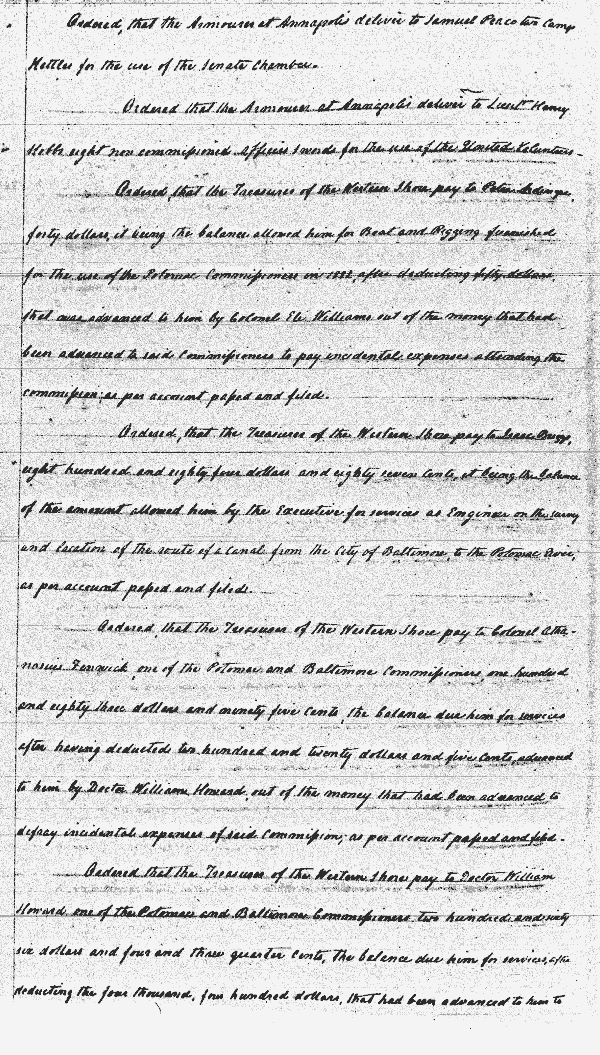 Ordered, that the Armourer at Annapolis deliver to Samuel Peaco two Camp
Kettles for the use of the Senate Chamber.
Ordered that the Armourer at Annapolis deliver to Lieut. Henry
Hobbs eight non commissioned officers swords for the use of the United Volunteers.
Ordered, that the Treasurer of the Western Shore pay to Peter
forty dollars, it being the balance allowed him for Boat and Rigging furnished
for the use of the Potomac Commissioners in 1822, after deducting fifty dollars,
that was advanced to him by Colonel Eli Williams out of the money that had
been advanced to said Commissioners to pay incidental expenses attending the
commission; as per account passed and filed.
Ordered, that the Treasurer of the Western Shore pay to Isaac Briggs,
eight hundred and eighty four dollars and eighty seven Cents, it being the balance
of the amount allowed him by the Executive for services as Engineer on the survey
and location of the route of a Canal from the City of Baltimore to the Potomac River,
as per account passed and filed.
Ordered that the Treasurer of the Western Shore pay to Colonel Atha-
nasius Fenwick, one of the Potomac and Baltimore Commissioners, one hundred
and eighty three dollars and ninety five Cents, the balance due him for services
after having deducted two hundred and twenty dollars and five Cents, advanced
to him by Doctor William Howard, out of the money that had been advanced to
defray incidental expenses of said Commission; as per account passed and filed.
Ordered that the Treasurer of the Western Shore pay to Doctor William
Howard one of the Potomac and Baltimore Commissioners two hundred and sixty
six dollars and four and three quarter Cents, the balance due him for services, after
deducting the four thousand, four hundred dollars, that had been advanced to him to